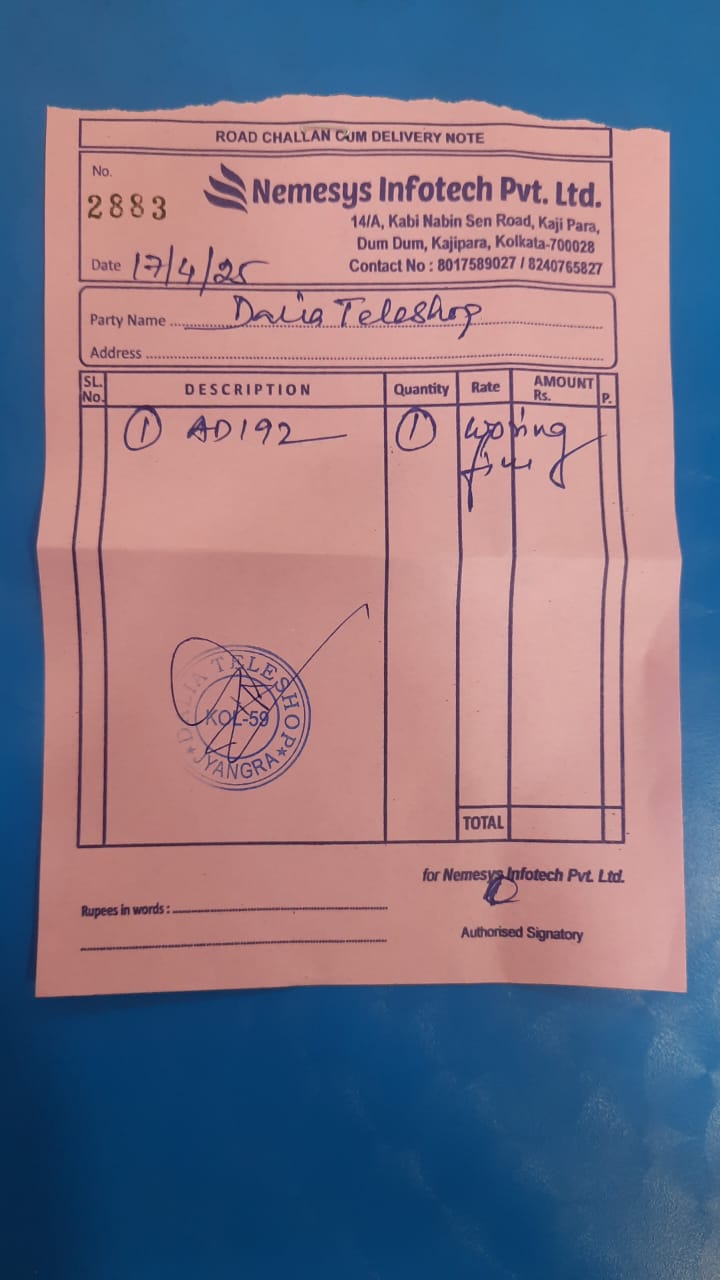 ROAD CHALLAN CUM DELIVERY NOTE
No.
2883
Nemesys Infotech Pvt. Ltd.
14/A, Kabi Nabin Sen Road, Kaji Para,
Dum Dum, Kajipara, Kolkata-700028
Contact No : 8017589027 / 8240765827
Date 17/4/25
Party Name Dalia Teleshop
Address
SL. No. DESCRIPTION Quantity Rate AMOUNT Rs. P.
① AD192 ①
DALIA TELESHOP
KOL-59
JYANGRA
TOTAL
for Nemesys Infotech Pvt. Ltd.
Rupees in words :
Authorised Signatory